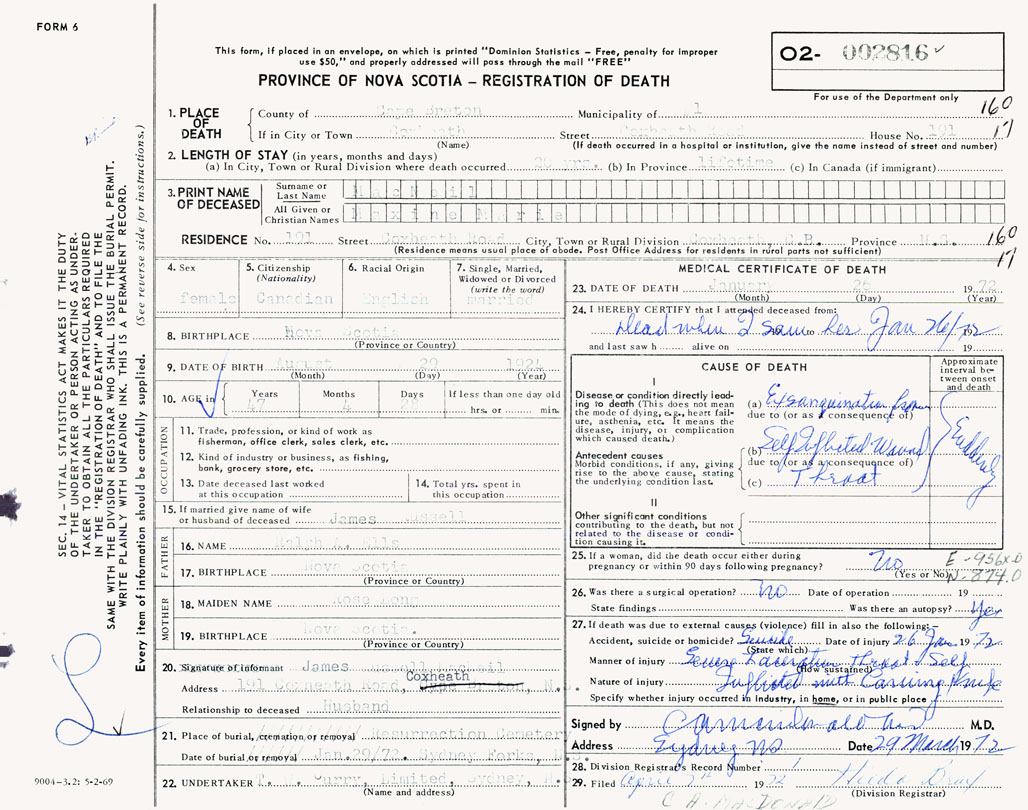 FORM 6
This form, if placed in an envelope, on which is printed "Dominion Statistics – Free, penalty for improper
use $50," and properly addressed will pass through the mail "FREE"
PROVINCE OF NOVA SCOTIA – REGISTRATION OF DEATH
O2- 002816
For use of the Department only
160
17
1. PLACE OF DEATH
County of Cape Breton Municipality of
If in City or Town Coxheath Street Coxheath Road House No. 191
(Name) (If death occurred in a hospital or institution, give the name instead of street and number)
2. LENGTH OF STAY (in years, months and days)
(a) In City, Town or Rural Division where death occurred yrs. (b) In Province lifetime (c) In Canada (if immigrant)
3. PRINT NAME OF DECEASED
Surname or Last Name MacNeil
All Given or Christian Names Maxine Marie
RESIDENCE No. 191 Street Coxheath Road City, Town or Rural Division Coxheath, C.B. Province N.S.
(Residence means usual place of abode. Post Office Address for residents in rural parts not sufficient)
160
17
4. Sex female
5. Citizenship (Nationality) Canadian
6. Racial Origin English
7. Single, Married, Widowed or Divorced (write the word) married
8. BIRTHPLACE Nova Scotia
(Province or Country)
9. DATE OF BIRTH August 29 1924
(Month) (Day) (Year)
10. AGE in Years 47 Months 4 Days 28 If less than one day old hrs. or min.
OCCUPATION
11. Trade, profession, or kind of work as
fisherman, office clerk, sales clerk, etc.
12. Kind of industry or business, as fishing,
bank, grocery store, etc.
13. Date deceased last worked
at this occupation
14. Total yrs. spent in
this occupation
15. If married give name of wife
or husband of deceased James Russell
FATHER
16. NAME Ralph A. Ells
17. BIRTHPLACE Nova Scotia
(Province or Country)
MOTHER
18. MAIDEN NAME Rose Long
19. BIRTHPLACE Nova Scotia.
(Province or Country)
20. Signature of informant James
Coxheath
Address 191 Coxheath Road,
Relationship to deceased Husband
21. Place of burial, cremation or removal Resurrection Cemetery
Date of burial or removal Jan.29/72. Sydney Forks,
22. UNDERTAKER T. W. Curry, Limited, Sydney, N.S.
(Name and address)
MEDICAL CERTIFICATE OF DEATH
23. DATE OF DEATH January 26 1972
(Month) (Day) (Year)
24. I HEREBY CERTIFY that I attended deceased from:
Dead when I saw to her Jan 26/72 19
and last saw h alive on 19
CAUSE OF DEATH
Approximate interval between onset and death
I
Disease or condition directly leading to death (This does not mean the mode of dying, e.g., heart failure, asthenia, etc. It means the disease, injury, or complication which caused death.)
(a) Exsanguination from
due to (or as a consequence of)
Antecedent causes
Morbid conditions, if any, giving rise to the above cause, stating the underlying condition last.
(b) Self Inflicted Wound
due to (or as a consequence of)
(c) Throat
Suddenly
II
Other significant conditions
contributing to the death, but not related to the disease or condition causing it.
25. If a woman, did the death occur either during
pregnancy or within 90 days following pregnancy? No
(Yes or No)
E-956x.0
N-874.0
26. Was there a surgical operation? No Date of operation 19
State findings Was there an autopsy? Yes
27. If death was due to external causes (violence) fill in also the following:–
Accident, suicide or homicide? Suicide Date of injury 26 Jan. 1972
(State which)
Manner of injury Severe Laceration Throat Self
(How sustained)
Nature of injury Inflicted with Carving Knife
Specify whether injury occurred in industry, in home, or in public place
Signed by M.D.
Address Sydney NS Date 29 March 1972
28. Division Registrar's Record Number
29. Filed April 7th 1972 Hilda
(Division Registrar)
C. H. MACDONALD
SEC. 14 – VITAL STATISTICS ACT MAKES IT THE DUTY
OF THE UNDERTAKER OR PERSON ACTING AS UNDER-
TAKER TO OBTAIN ALL THE PARTICULARS REQUIRED
IN THE "REGISTRATION OF DEATH" AND TO FILE THE
SAME WITH THE DIVISION REGISTRAR WHO SHALL ISSUE THE BURIAL PERMIT.
WRITE PLAINLY WITH UNFADING INK. THIS IS A PERMANENT RECORD.
Every item of information should be carefully supplied. (See reverse side for instructions.)
9004-3.2: 5-2-69